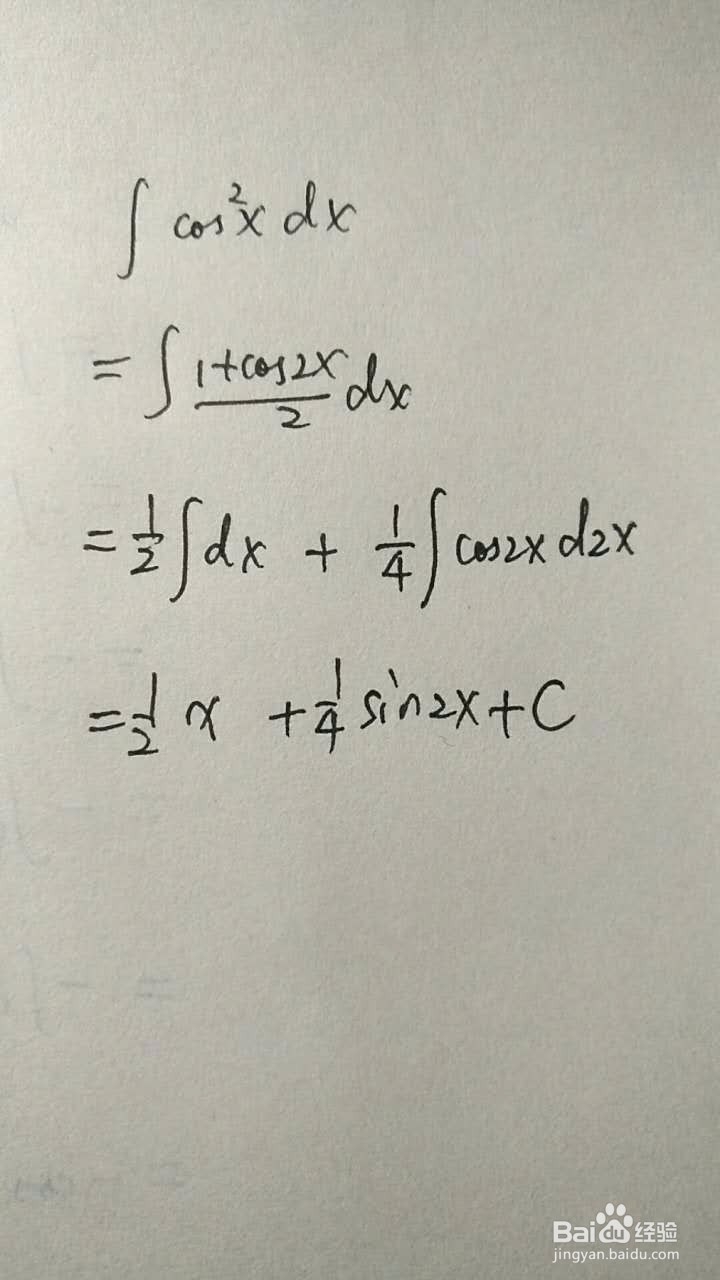 ∫ cos²x dx
= ∫ (1+cos2x)/2 dx
= 1/2 ∫ dx + 1/4 ∫ cos2x d2x
= 1/2 x + 1/4 sin2x + C
Baidu经验
jingyan.baidu.com